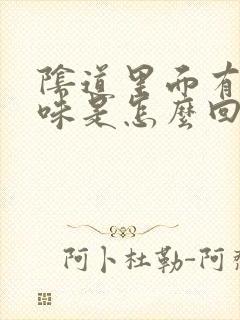 陰道里面有
味是怎麼回
阿卜杜勒-阿